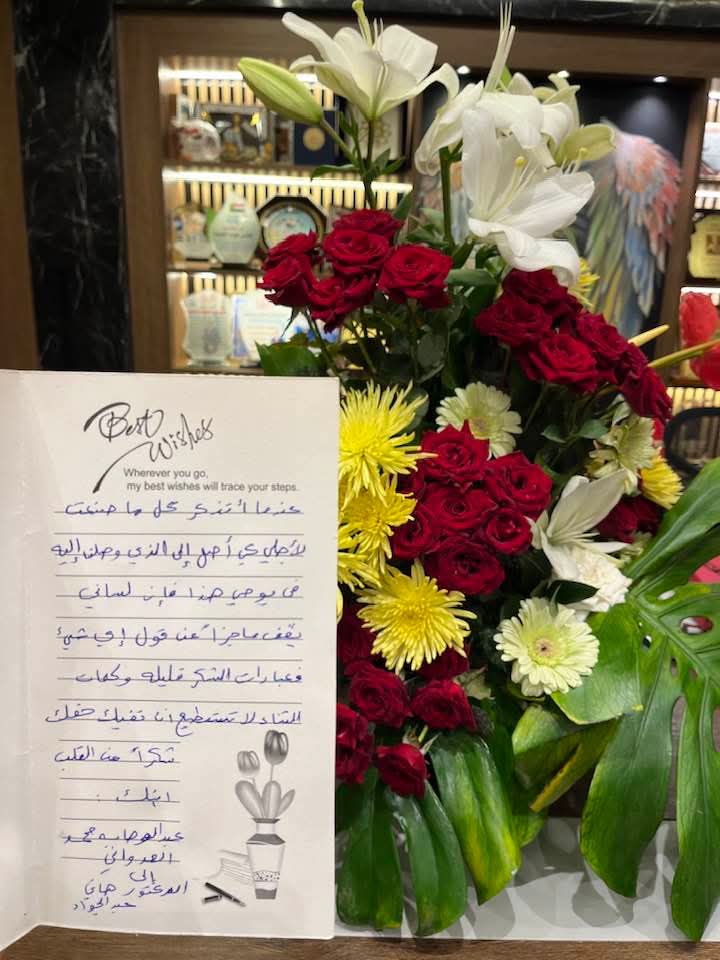 Best
Wishes
Wherever you go,
my best wishes will trace your steps.
عندما أتذكر كل ما صنعت
لأجلي كي أصل إلى الذي وصلت إليه
في يومي هذا فإن لساني
يقف عاجزاً عن قول إي شيء
فعبارات الشكر قليله وكلمات
الثناء لا تستطيع ان تفيك حقك
شكراً من القلب
ابنك
عبدالوهاب محمد
العدواني
إلى
الدكتور هاني
عبدالجواد